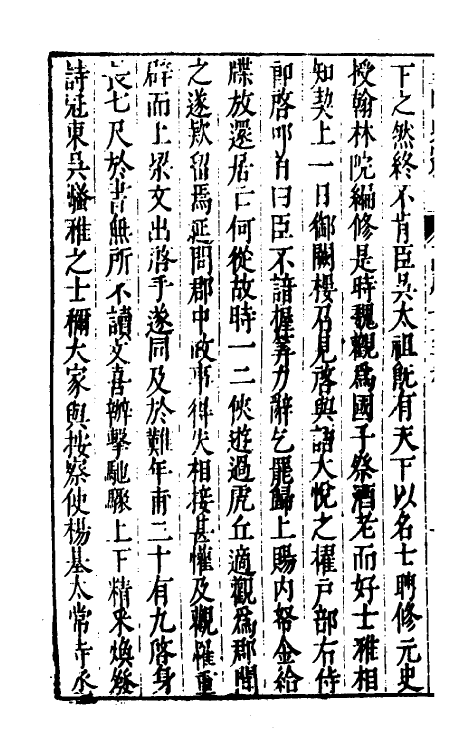 下之然終不肯臣吳太祖旣有天下以名士聘修元史
授翰林院編修是時魏觀爲國子祭酒老而好士雅相
知契上一日御闕樓召見啓與語大悅之擢戸部右侍
郎啓叩首曰臣不諳握筭力辭乞罷歸上賜内帑金給
牒放還居亡何從故時一二俠遊過虎丘適觀爲郡聞
之遂欵留焉延問郡中政事得失相接甚懽及觀罹重
辟而上梁文出啓手遂同及於難年甫二十有九啓身
長七尺於書無所不讀文喜辦擊馳驟上下精采煥發
詩冠東吳騷雅之士稱大家與按察使楊基太常寺丞